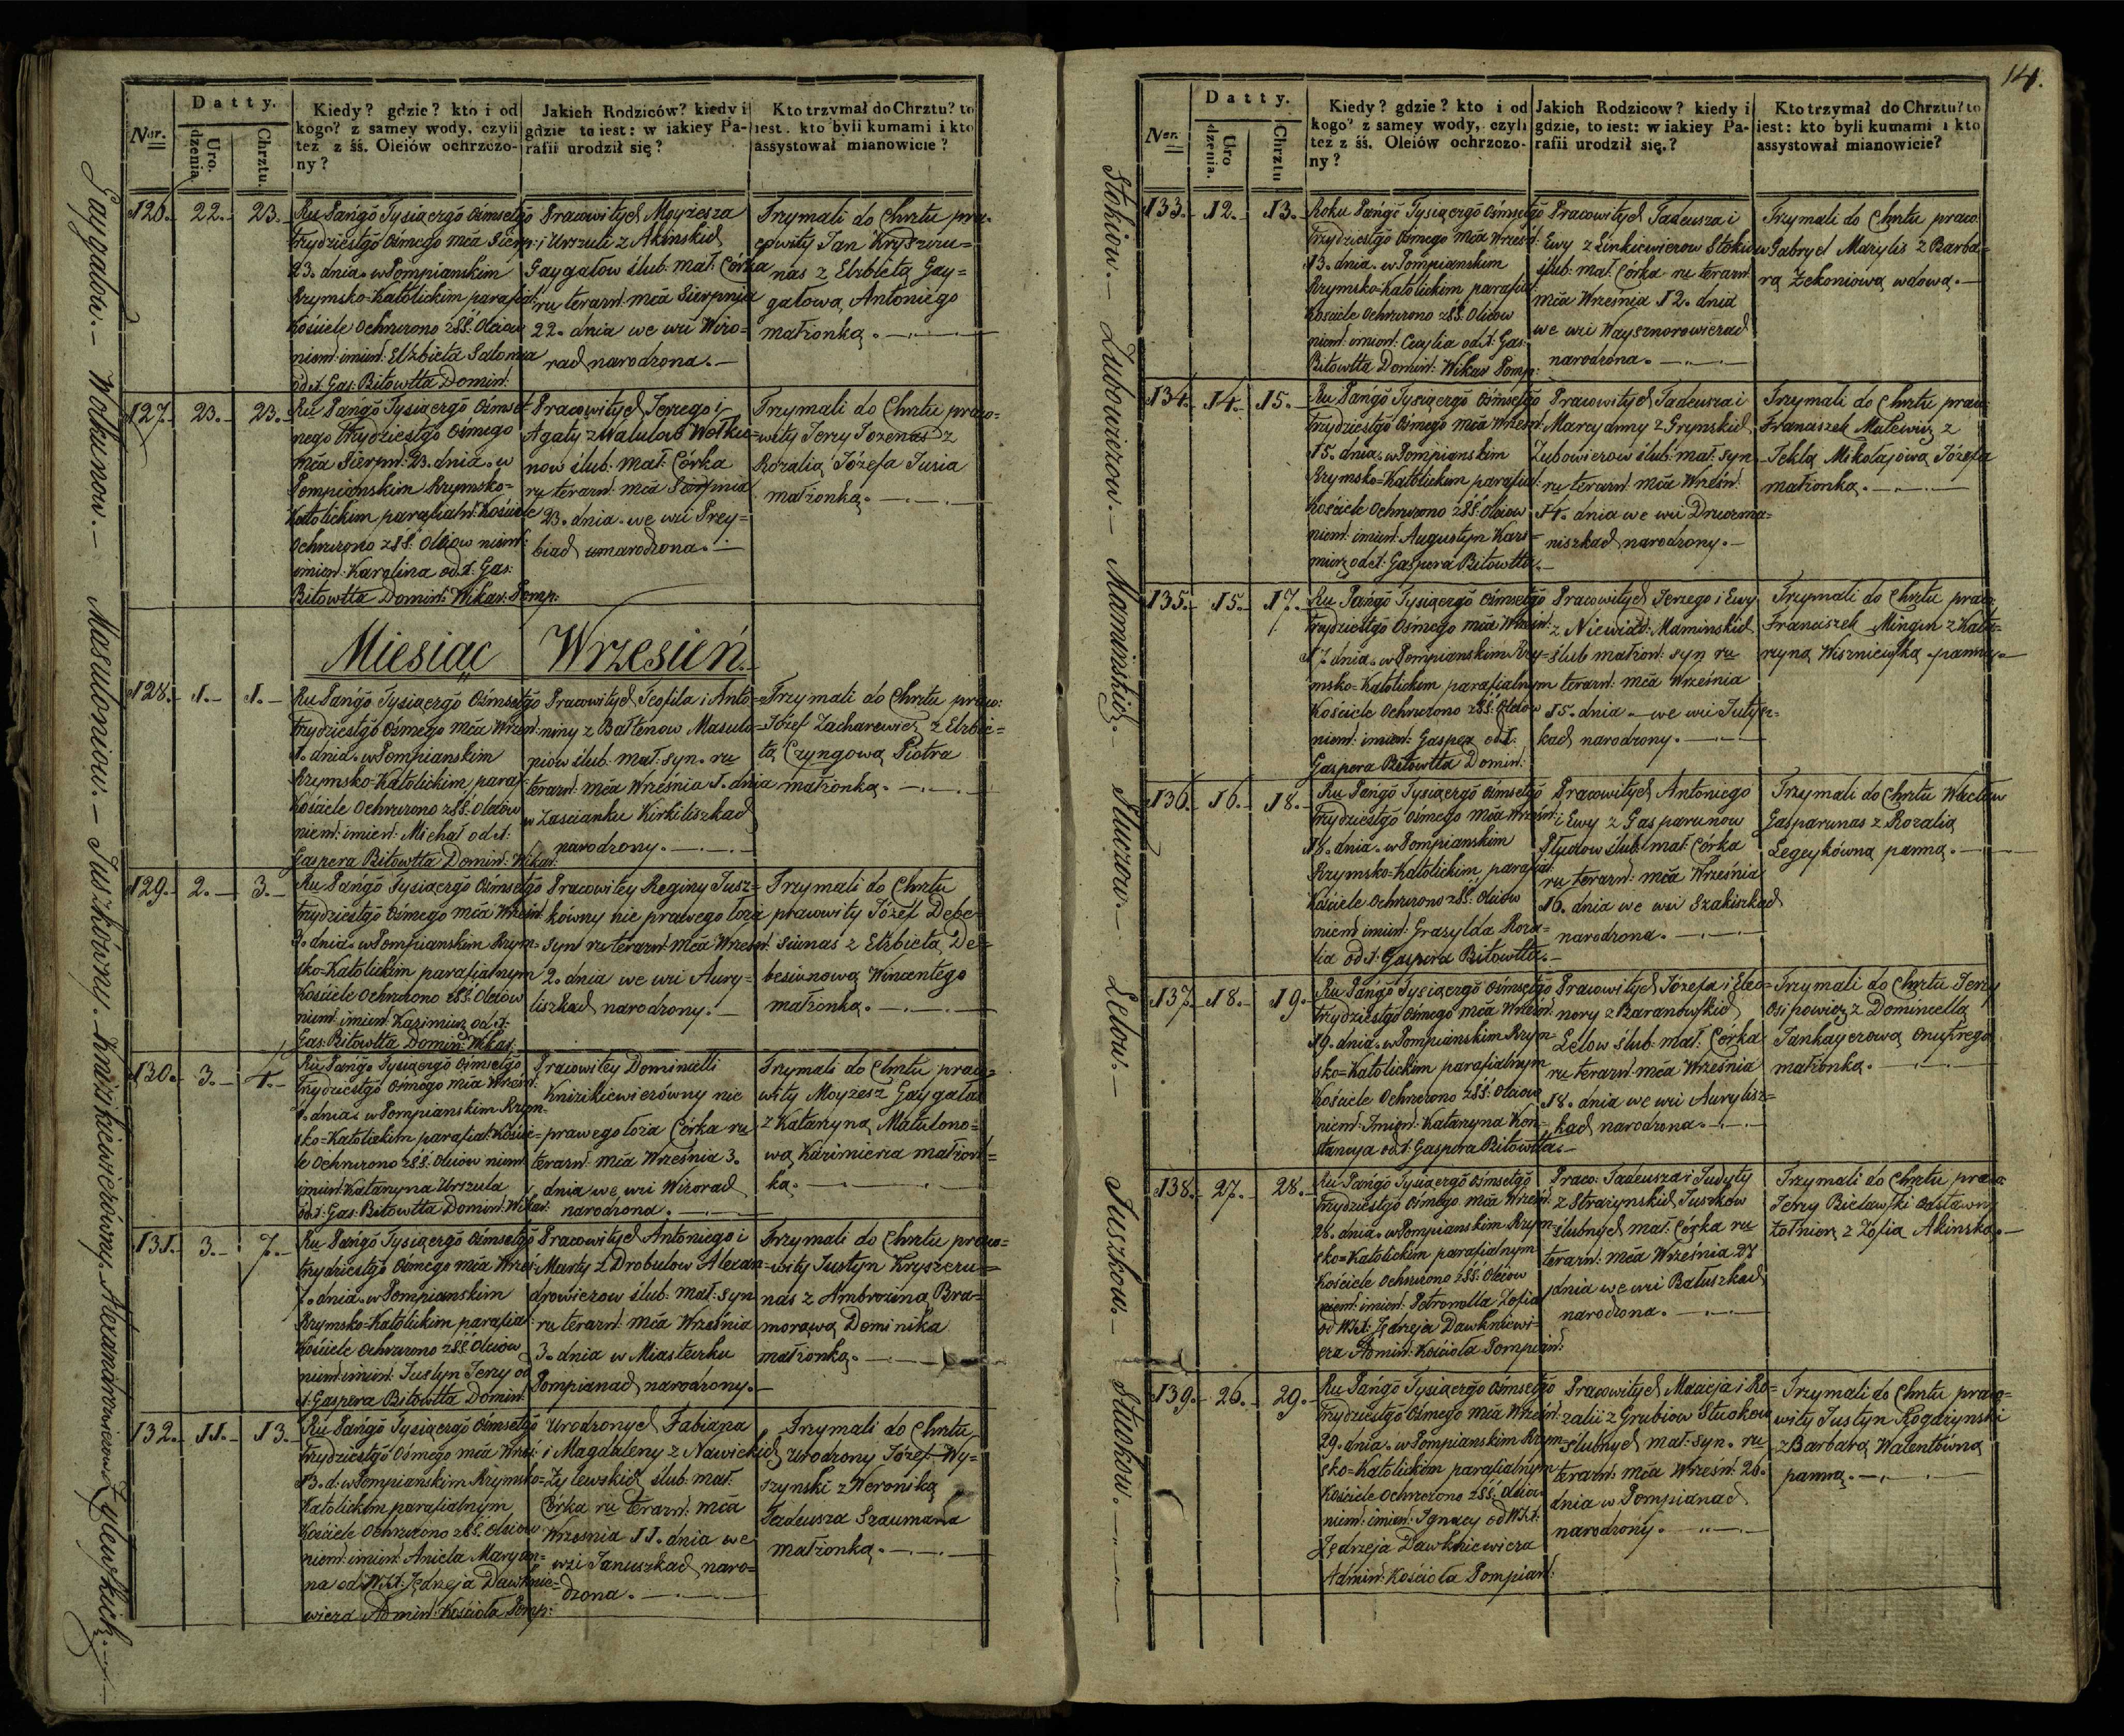 Datty.
Ner.
Uro-
dzenia.
Chrztu.
Kiedy? gdzie? kto i od
kogo? z samey wody, czyli
też z śś. Oleiów ochrzczo-
ny?
Jakich Rodziców? kiedy i
gdzie to iest: w iakiey Pa-
rafii urodził się?
Kto trzymał do Chrztu? to
iest. kto byli kumami i kto
assystował mianowicie?
Gaygałow. — Wołkunow. — — Juszkówny. Kniżikiewiczówny. Alexandrowiczow. Żylewskich. —
126. 22. 23.
Ru Pańgō Tysiączgō Ośmsetgō
trzydziestgō Ośmego mca Sierp:
23. dnia. w Pompianskim
Rzymsko-Katolickim parafial:
Kościele Ochrzczono z SŚ. Oleiow
niem: imien: Elżbieta Saloma
od X: Gas: Bitowtta Domin:
Pracowitych Moyżesza
i Urszuli z Akinskich
Gaygałow ślub: mał: Córka
ru terazń: mca Sierpnia
22. dnia we wsi Wizo-
rach narodzona. —
Trzymali do Chrztu pra-
cowity Jan Kryszczu=
nas z Elzbietą Gay=
gałową Antoniego
małżonką. —
127. 23. 23.
Ru Pańgō Tysiączgō Ośmset-
nego trzydziestgō Ośmego
mca Sierpń: 23. dnia. w
Pompianskim Rzymsko=
Katolickim parafialń: Kościele
Ochrzczono z SŚ: Oleiow niem:
imien: Karolina od X: Gas:
Bitowtta Domin: Wikar: Pomp:
Pracowitych Jerzego i
Agaty z Wałulow Wołku=
now ślub: mał: Córka
ru terazń: mca Sierpnia
23. dnia. we wsi Prey=
biach narodzona. —
Trzymali do Chrztu praco-
wity Jerzy Jozenas z
Rozalią Józefa Jusia
małżonką. —
Miesiąc Wrzesień.
128. 1. 1.
Ru Pańgō Tysiączgō Ośmsetgō
trzydziestgō Ośmego mca Wrześ:
1. dnia. w Pompianskim
Rzymsko-Katolickim paraf:
Kościele Ochrzczono z SŚ: Oleiow
niem: imien: Michał od X:
Gaspera Bitowtta Domin: Wikar:
Pracowitych Teofila i Anto=
niny z Bałtenow
ślub: mał: syn. ru
terazń: mca Września 1. dnia
w Zascianku Kirkiliszkach
narodzony. —
Trzymali do Chrztu praco:
Józef Zacharewicz z Elzbie=
tą Czyngową Piotra
małżonką. —
129. 2. 3.
Ru Pańgō Tysiączgō Ośmsetgō
trzydziestgō Ośmego mca Wrześń:
3. dnia. w Pompianskim Rzym=
sko-Katolickim parafialnym
Kościele Ochrzczono z SŚ: Oleiow
niem: imien: Kazimierz od X:
Gas: Bitowtta Domin: Wikar:
Pracowitey Reginy Jusz=
kówny nie prawego łoża
syn ru terazń: mca Wrześń:
2. dnia we wsi Aury=
liszkach narodzony. —
Trzymali do Chrztu
pracowity Józef Debe=
siunas z Elzbietą De=
besiunową Wincentego
małżonką. —
130. 3. 4.
Ru Pańgō Tysiączgō Ośmsetgō
trzydziestgō Ośmego mca Wrześń:
4. dnia. w Pompianskim Rzym-
sko=Katolickim parafial: Koście=
le Ochrzczono z SŚ: Oleiow niem:
imien: Katarzyna Urszula
od X: Gas: Bitowtta Domin: Wikar:
Pracowitey Dominielli
Kniżikiewiczówny nie
prawego łoża Córka ru
terazń: mca Września 3.
dnia we wsi Wizorach
narodzona. —
Trzymali do Chrztu praco=
wity Moyżesz Gaygałas
z Katarzyną Matulono=
wą Kazimierza małżon=
ką. —
131. 3. 7.
Ru Pańgō Tysiączgō Ośmsetgō
trzydziestgō Ośmego mca Wrześ:
7. dnia. w Pompianskim
Rzymsko-Katolickim parafial:
Kościele Ochrzczono z SŚ Oleiow
niem: imien: Justyn Jerzy od
X: Gaspera Bitowtta Domin:
Pracowitych Antoniego i
Marty z Drobułow Alexan=
drowiczow ślub: mał: syn
ru terazń: mca Września
3. dnia w Miasteczku
Pompianach narodzony. —
Trzymali do Chrztu praco=
wity Justyn Kryszczu=
nas z Ambroziną Bra=
morową Dominika
małżonką. —
132. 11. 13.
Ru Pańgō Tysiączgō Ośmsetgō
trzydziestgō Ośmego mca Wrześ:
13. d: w Pompianskim Rzymsko=
Katolickim parafialnym
Kościele Ochrzczono z SŚ: Oleiow
niem: imien: Aniela Maryan=
na od WX: Jędrzeja Dawknie=
wicza Admin: Kościoła Pomp:
Urodzonych Fabiana
i Magdaleny z Nawickich
Żylewskich ślub: mał:
Córka ru terazń: mca
Września 11. dnia we
wsi Januszkach naro=
dzona. —
Trzymali do Chrztu
Urodzony Józef Wy=
szynski z Weroniką
Tadeusza Szaumana
małżonką. —
14.
Datty.
Ner.
Uro
dzenia.
Chrztu
Kiedy? gdzie? kto i od
kogo? z samey wody, czyli
też z śś. Oleiów ochrzczo-
ny?
Jakich Rodzicow? kiedy i
gdzie, to iest: w iakiey Pa-
rafii urodził się.?
Kto trzymał do Chrztu? to
iest: kto byli kumami i kto
assystował mianowicie?
Stokiow. — Zubowiczow. — Maminskich. — — Lelow. — Juszkow. — Stuokow. —
133. 12. 13.
Roku Pańgō Tysiączgō Ośmsetgō
trzydziestgō Ośmego mca Wrześń:
13. dnia. w Pompianskim
Rzymsko-Katolickim parafial:
Kościele Ochrzczono z SŚ. Oleiow
niem: imien: Cecylia od X: Gas:
Bitowtta Domin: Wikar Pomp:
Pracowitych Tadeusza i
Ewy z Linkiewiczow Stokiow
ślub: mał: Córka ru terazń:
mca Września 12. dnia
we wsi
narodzona. —
Trzymali do Chrztu praco:
Gabryel Marylis z Barba=
rą Zekoniową wdową. —
134. 14. 15.
Ru Pańgō Tysiączgō Ośmsetgō
trzydziestgō Ośmego mca Wrześń:
15. dnia. w Pompianskim
Rzymsko=Katolickim parafial:
Kościele Ochrzczono z SŚ: Oleiow
niem: imien: Augustyn Kazi=
mierz od X: Gaspera Bitowtta. —
Pracowitych Tadeusza i
Marcyanny z Grynskich
Zubowiczow ślub: mał: syn
ru terazń: mca Wrześń:
14. dnia we wsi Druczma=
niszkach narodzony. —
Trzymali do Chrztu praco:
Franciszek Malewicz z
Teklą Mikołajową Józefa
małżonką. —
135. 15. 17.
Ru Pańgō Tysiączgō Ośmsetgō
trzydziestgō Ośmego mca Wrześń:
17. dnia. w Pompianskim Rzy=
msko=Katolickim parafialnym
Kościele Ochrzczono z SŚ: Oleiow
niem: imien: Gasper od X:
Gaspera Bitowtta Domin:
Pracowitych Jerzego i Ewy
z Niewiad: Maminskich
ślub małżon: syn ru
terazń: mca Września
15. dnia. — we wsi
kach narodzony. —
Trzymali do Chrztu praco:
Franciszek Mingin z Kata=
rzyną panną. —
136. 16. 18.
Ru Pańgō Tysiączgō Ośmsetgō
trzydziestgō Ośmego mca Wrześń:
18. dnia. w Pompianskim
Rzymsko-Katolickim parafial:
Kościele Ochrzczono z SŚ: Oleiow
niem: imien: Grasylda Roza=
lia od X: Gaspera Bitowtta. —
Pracowitych Antoniego
i Ewy z Gasparunow
ślub: mał: Córka
ru terazń: mca Września
16. dnia we wsi Szakiszkach
narodzona. —
Trzymali do Chrztu Wacław
Gasparunas z Rozalią
Legeykówną panną. —
137. 18. 19.
Ru Pańgō Tysiączgō Ośmsetgō
trzydziestgō Ośmego mca Wrześń:
19. dnia. w Pompianskim Rzym=
sko=Katolickim parafialnym
Kościele Ochrzczono z SŚ: Oleiow
niem: Imien: Katarzyna Kon=
stancya od X: Gaspera Bitowtta. —
Pracowitych Józefa i Eleo=
nory z Baranowskich
Lelow ślub: mał: Córka
ru terazń: mca Września
18. dnia we wsi Aurylisz=
kach narodzona. —
Trzymali do Chrztu Jerzy
Osipowicz z Dominiellą
Jankayerową Onufrego
małżonką. —
138. 27. 28.
Ru Pańgō Tysiączgō Ośmsetgō
trzydziestgō Ośmego mca Wrześń:
28. dnia. w Pompianskim Rzym=
sko=Katolickim parafialnym
Kościele Ochrzczono z SŚ: Oleiow
niem: imien: Petronella Zofia
od WX: Jędrzeja Dawkniewi=
cza Admin: Kościoła Pompiań:
Praco: Tadeusza i Judyty
z Strazynskich Juszkow
ślubnych mał: Córka ru
terazń: mca Września 27
dnia we wsi Bałuszkach
narodzona. —
Trzymali do Chrztu praco
Jerzy Bielawski Odstawny
żołnierz z Zofią Akinską. —
139. 26. 29.
Ru Pańgō Tysiączgō Ośmsetgō
trzydziestgō Ośmego mca Wrześń:
29. dnia. w Pompianskim Rzym=
sko=Katolickim parafialnym
Kościele Ochrzczono z SŚ: Oleiow
niem: imien: Ignacy od WX:
Jędrzeja Dawkniewicza
Admin: Kościoła Pompiań:
Pracowitych Macieja i Ro=
zalii z Grubiow Stuokow
ślubnych mał: syn. ru
terazń: mca Wrześń: 26.
dnia w Pompianach
narodzony. —
Trzymali do Chrztu praco=
wity Justyn Rogdzynski
z Barbarą Walentówną
panną. —